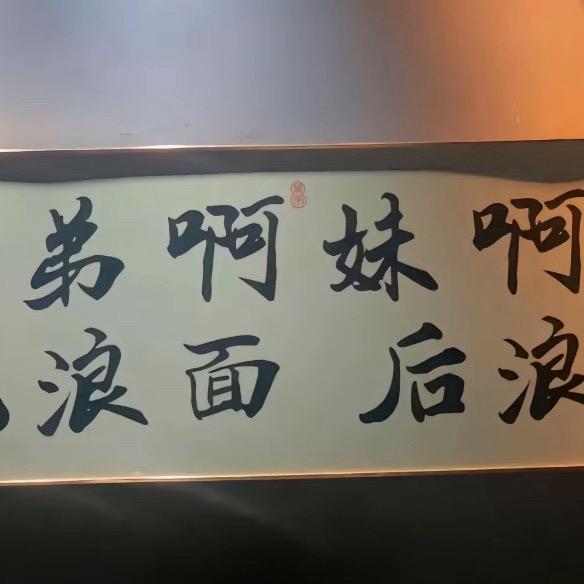 啊妹啊弟
浪后面浪